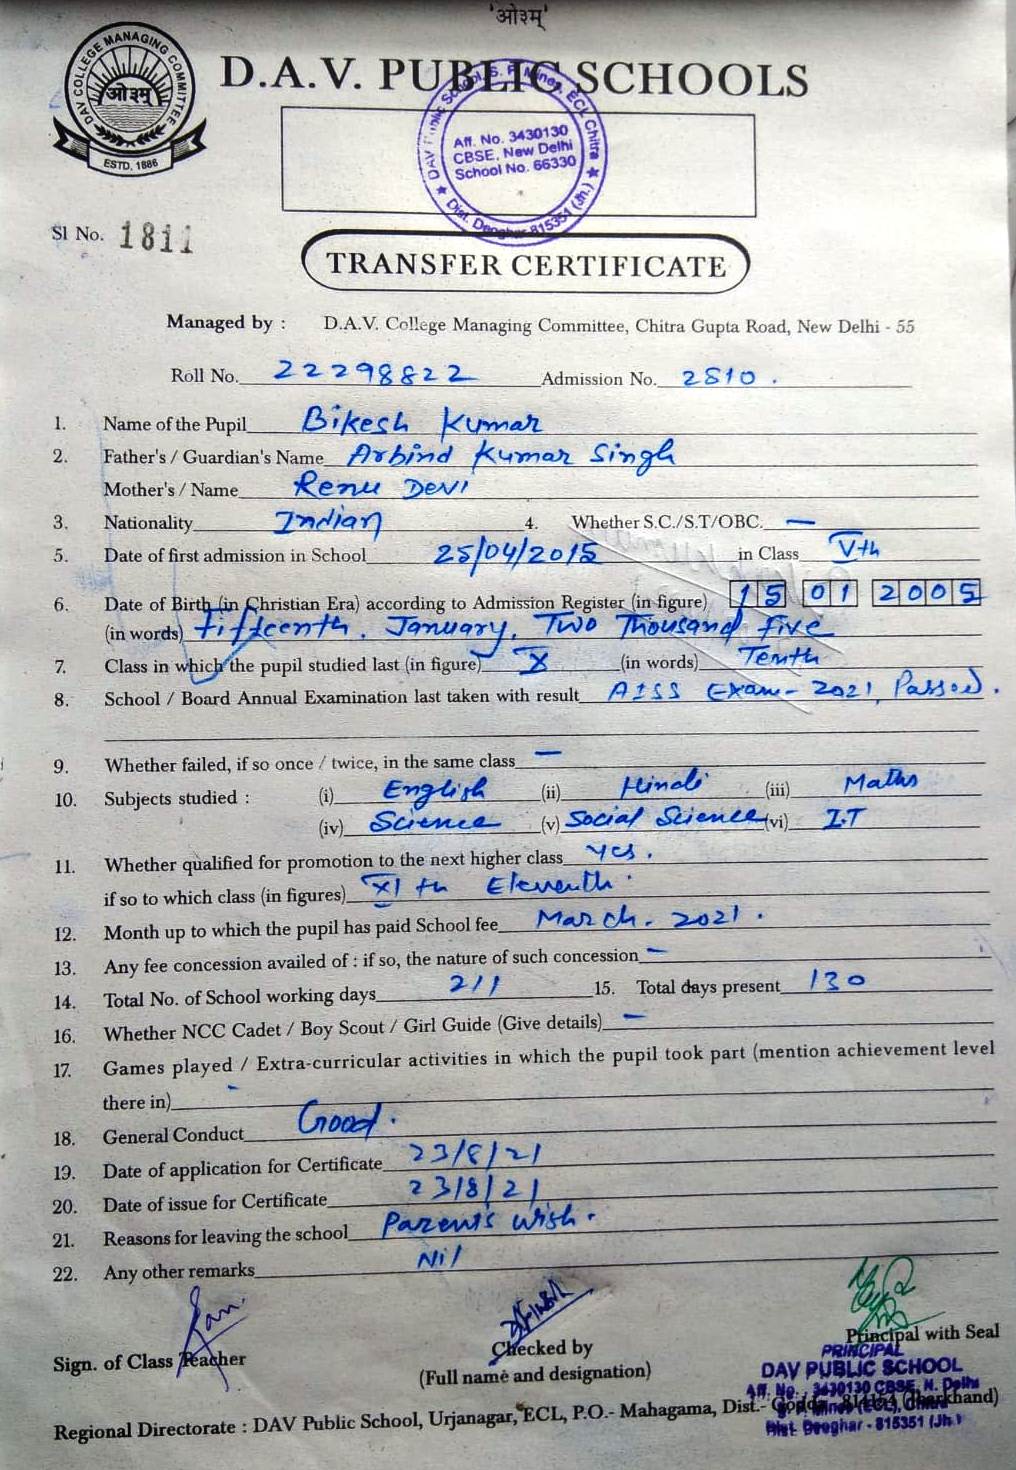 'ओ३म्'
DAV COLLEGE MANAGING COMMITTEE
ओ३म्
ESTD. 1886
D.A.V. PUBLIC SCHOOLS
DAV Public School, S. P. Mines, ECL Chitra
Aff. No. 3430130
CBSE, New Delhi
School No. 66330
Dist. Deoghar-815351 (Jh.)
Sl No. 1811
TRANSFER CERTIFICATE
Managed by : D.A.V. College Managing Committee, Chitra Gupta Road, New Delhi - 55
Roll No. 22298822 Admission No. 2810 .
1. Name of the Pupil Bikesh Kumar
2. Father's / Guardian's Name Arbind Kumar Singh
Mother's / Name Renu Devi
3. Nationality Indian 4. Whether S.C./S.T/OBC. —
5. Date of first admission in School 25/04/2015 in Class Vth
6. Date of Birth (in Christian Era) according to Admission Register (in figure) 15 01 2005
(in words) fifteenth, January, Two Thousand five
7. Class in which the pupil studied last (in figure) X (in words) Tenth
8. School / Board Annual Examination last taken with result AISS Exam-2021, Passed.
9. Whether failed, if so once / twice, in the same class —
10. Subjects studied : (i) English (ii) Hindi (iii) Maths
(iv) Science (v) Social Science (vi) I.T
11. Whether qualified for promotion to the next higher class yes.
if so to which class (in figures) XI th Eleventh.
12. Month up to which the pupil has paid School fee March. 2021.
13. Any fee concession availed of : if so, the nature of such concession —
14. Total No. of School working days 211 15. Total days present 130
16. Whether NCC Cadet / Boy Scout / Girl Guide (Give details) —
17. Games played / Extra-curricular activities in which the pupil took part (mention achievement level
there in) -
18. General Conduct Good.
19. Date of application for Certificate 23/8/21
20. Date of issue for Certificate 23/8/21
21. Reasons for leaving the school Parent's wish.
22. Any other remarks Nil
Sign. of Class Teacher
Checked by
(Full name and designation)
Principal with Seal
PRINCIPAL
DAV PUBLIC SCHOOL
Aff. No. 3430130 CBSE, N. Delhi
S. P. Mines (ECL), Chitra
Dist. Deoghar - 815351 (Jh.)
Regional Directorate : DAV Public School, Urjanagar, ECL, P.O.- Mahagama, Dist.- Godda - 814154 (Jharkhand)